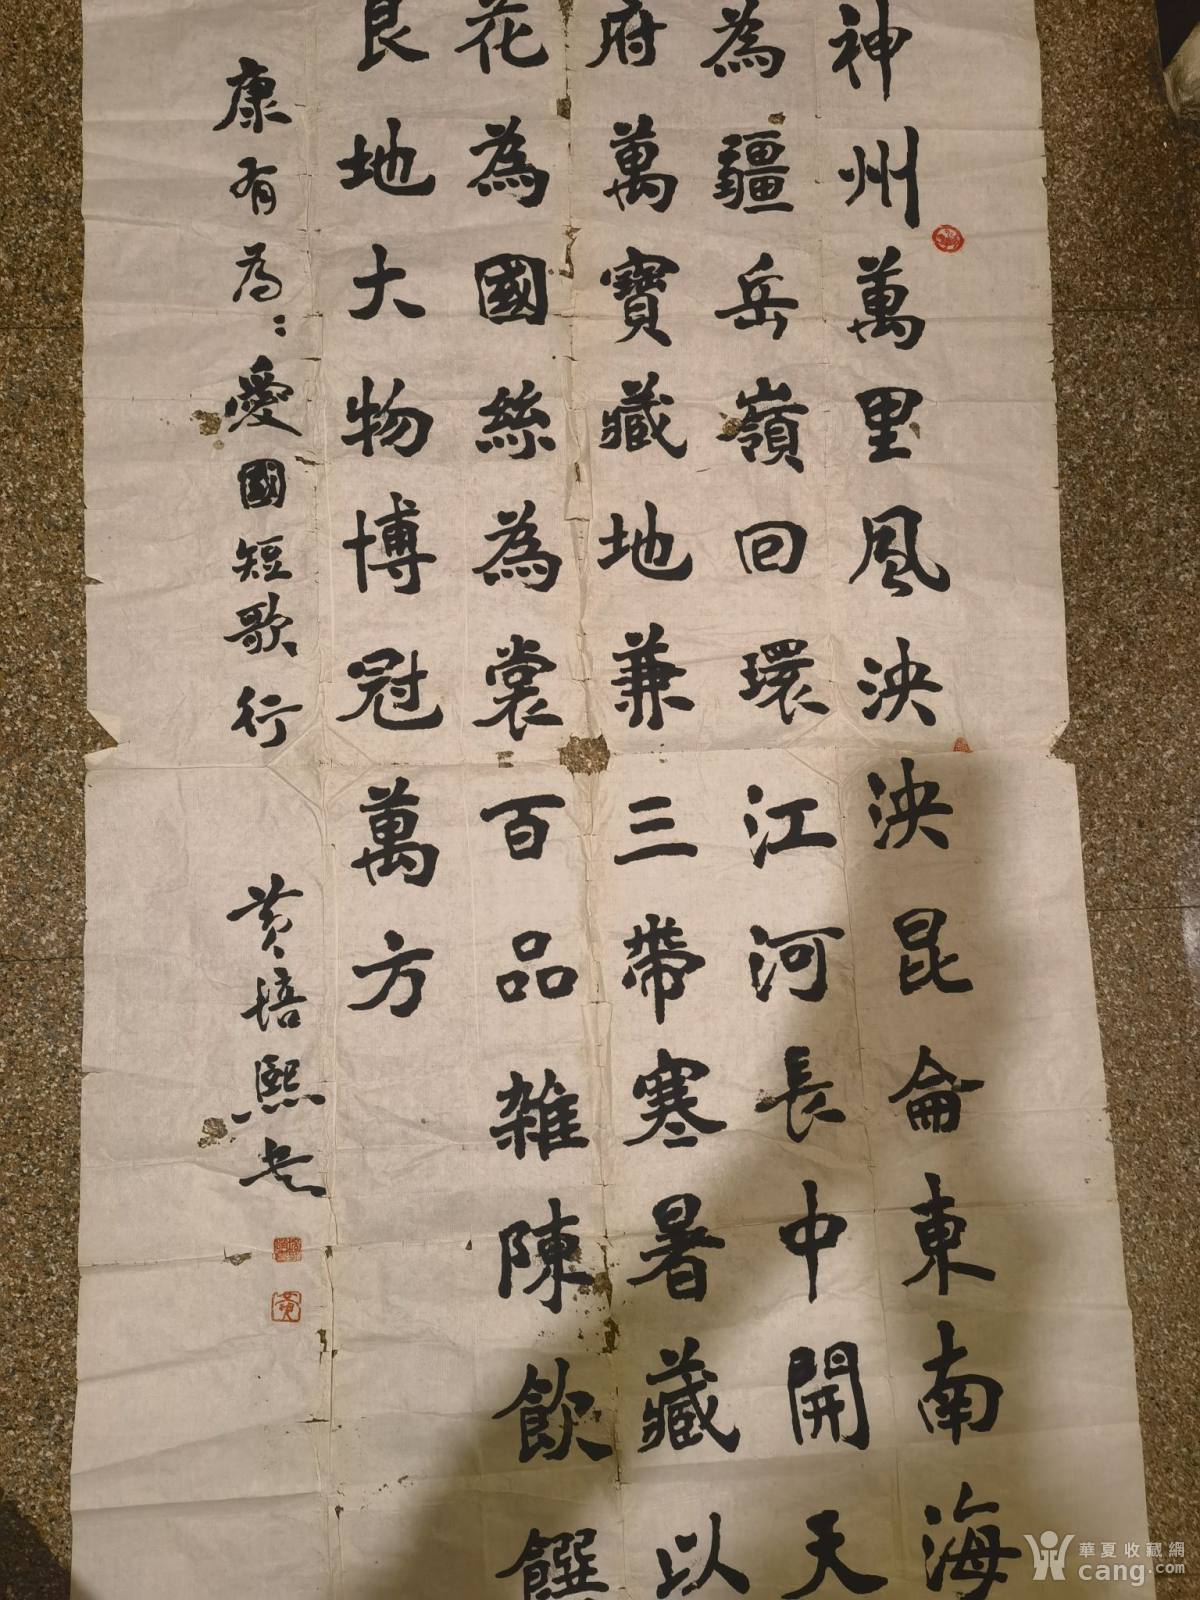 神州萬里風泱泱昆侖東南海
為疆岳嶺回環江河長中開天
府萬寶藏地兼三帶寒暑藏以
花為國絲為裳百品雜陳飲饌
良地大物博冠萬方
康有為：愛國短歌行
黃培熙書
黃
華夏收藏網
cang.com